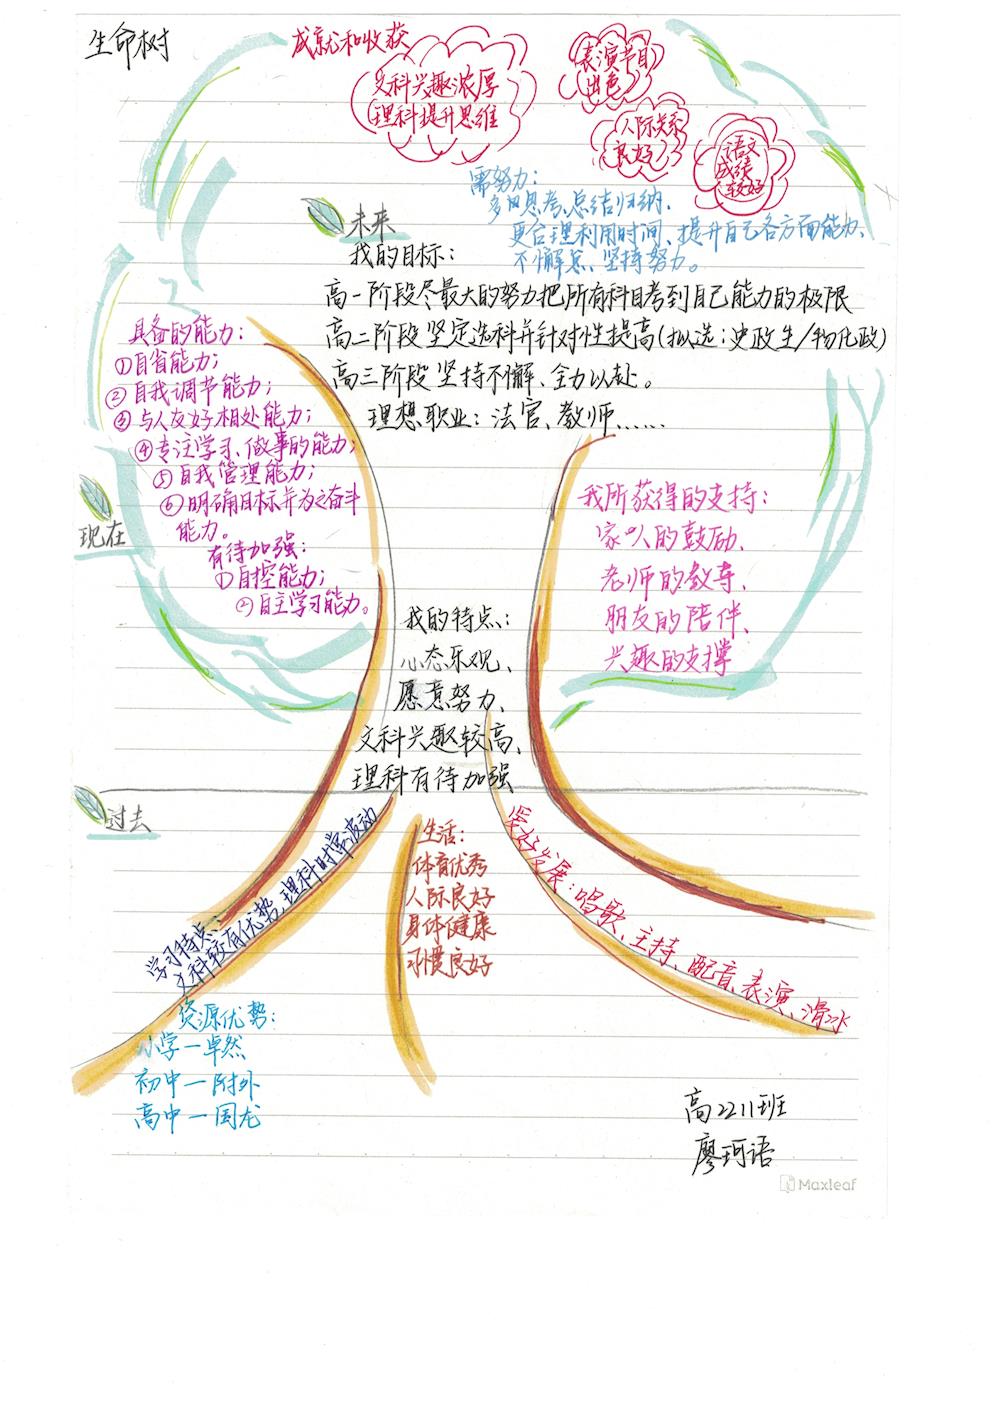 生命树
成就和收获
文科兴趣浓厚
理科提升思维
表演节目
出色
人际关系
良好
语文
成绩
较好
需努力：
多日思考、总结归纳、
更合理利用时间、提升自己各方面能力、
不懈怠、坚持努力。
未来
我的目标：
高一阶段尽最大的努力把所有科目考到自己能力的极限
高二阶段坚定选科并针对性提高(拟选：史政生/物化政)
高三阶段坚持不懈、全力以赴。
理想职业：法官、教师......
具备的能力：
①自省能力；
②自我调节能力；
③与人友好相处能力；
④专注学习、做事的能力；
⑤自我管理能力；
⑥明确目标并为之奋斗
能力。
有待加强：
①自控能力；
②自主学习能力。
现在
我所获得的支持：
家人的鼓励、
老师的教导、
朋友的陪伴、
兴趣的支撑
我的特点：
心态乐观、
愿意努力、
文科兴趣较高、
理科有待加强
过去
学习特点：
文科较有优势,理科时常波动
生活：
体育优秀
人际良好
身体健康
习惯良好
爱好发展：唱歌、主持、配音、表演、滑冰
资源优势：
小学—卓然
初中—附外
高中—国龙
高2211班
廖珂语
Maxleaf